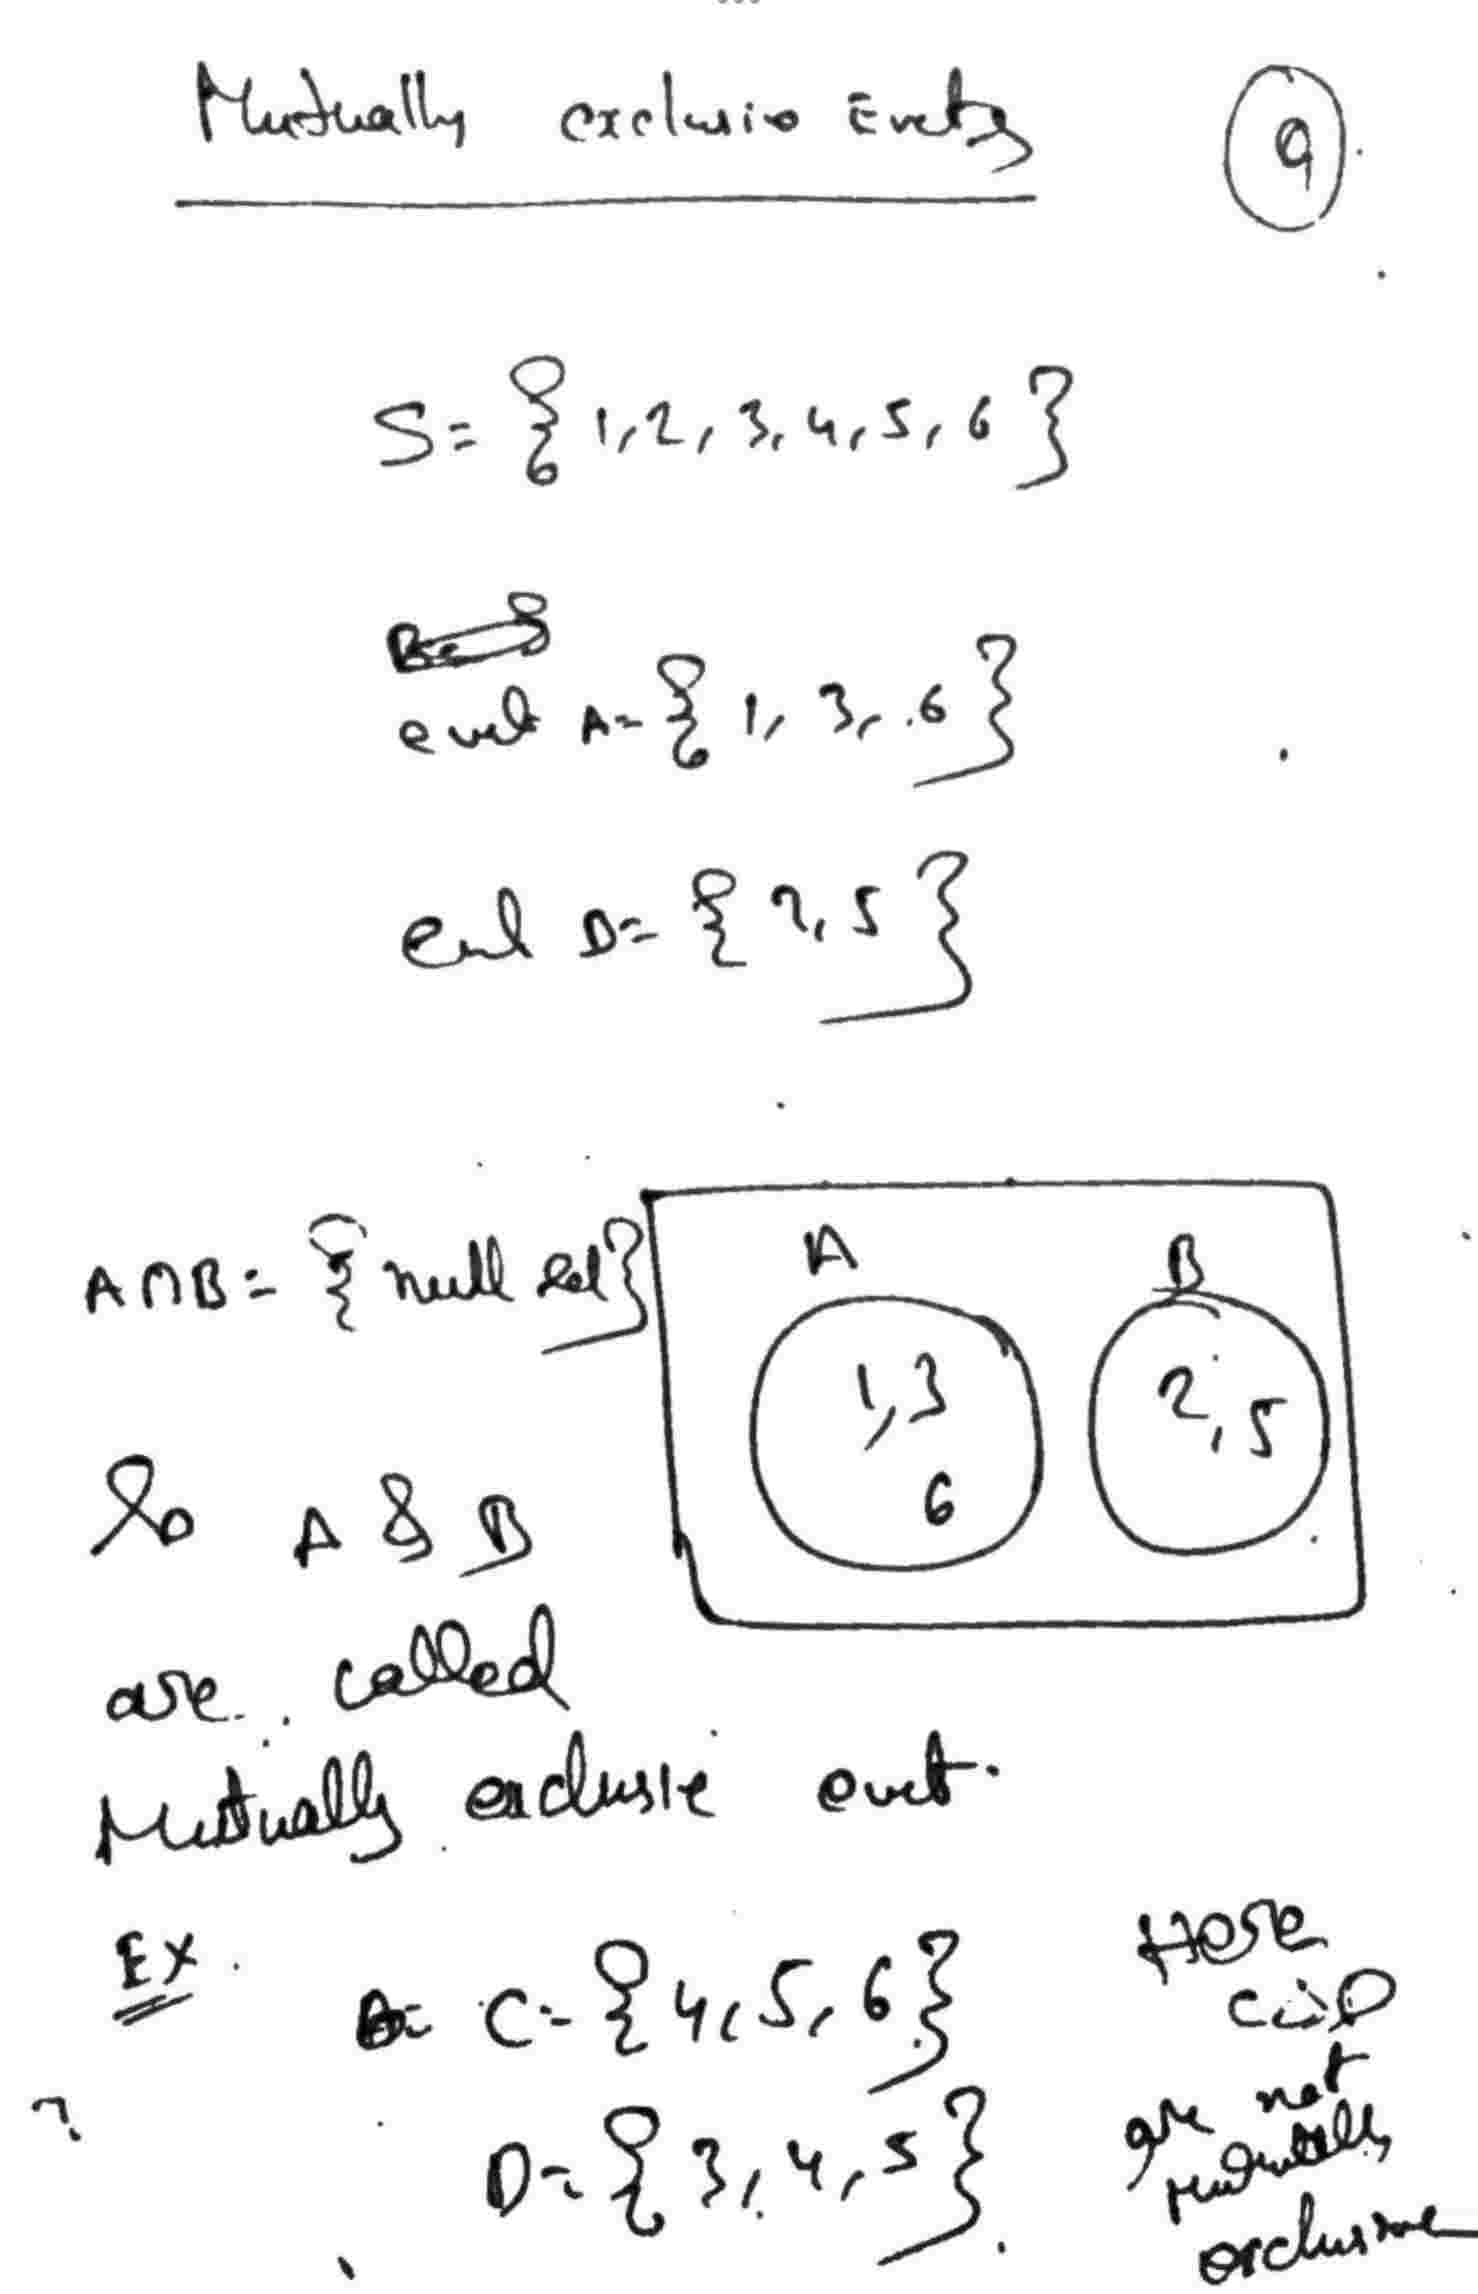 Mutually exclusiv Evets
9
S = { 1, 2, 3, 4, 5, 6 }
evet A = { 1, 3, 6 }
evet B = { 2, 5 }
A ∩ B = { null set }
A
B
1, 3
6
2, 5
So A & B
are called
Mutually exclusie evet.
Ex. C = { 4, 5, 6 }
D = { 3, 4, 5 }
Here
C & D
are not
mutually
exclusive